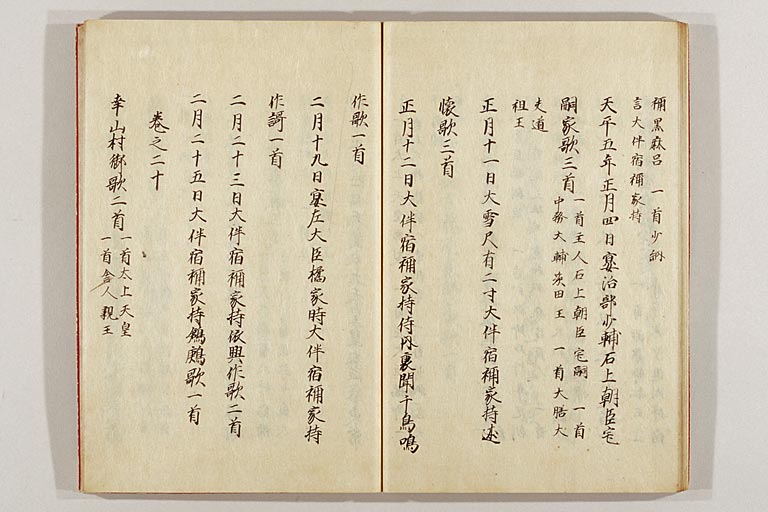 祢黒麻呂 一首少納
言大伴宿祢家持
天平五年正月四日宴治部少輔石上朝臣宅
嗣家歌三首 一首主人石上朝臣宅嗣 一首
中務大輔茨田王 一首大膳大
夫道
祖王
正月十一日大雪尺有二寸大伴宿祢家持述
懐歌三首
正月十二日大伴宿祢家持侍内裏聞千鳥鳴
作歌一首
二月十九日宴左大臣橘家時大伴宿祢家持
作謌一首
二月二十三日大伴宿祢家持依興作歌二首
二月二十五日大伴宿祢家持鶬鶊歌一首
巻之二十
幸山村御歌二首 一首太上天皇
一首舎人親王